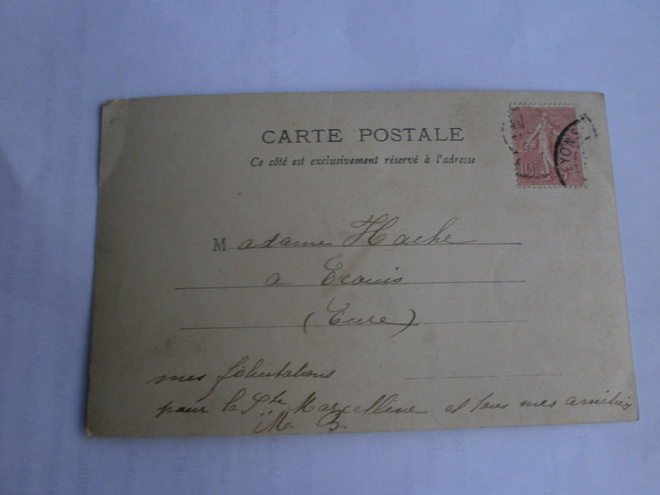 CARTE POSTALE
Ce côté est exclusivement réservé à l'adresse
10
LYONS
Madame Haché
a Ecouis
(Eure)
mes félicitations
pour la Ste Marcelline et tous mes amitiés
M. B.